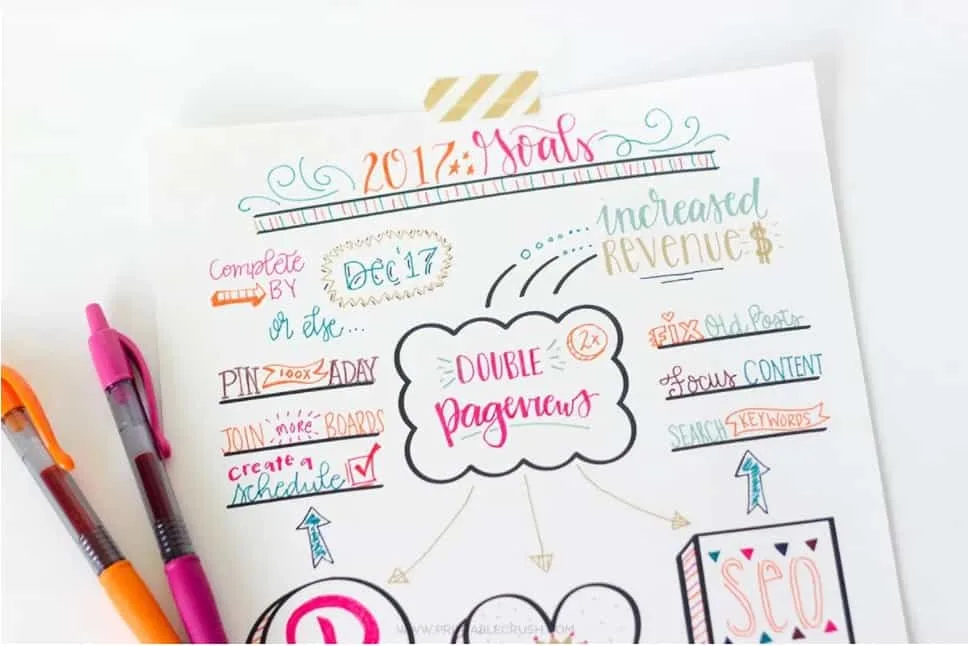 2017 Goals
Complete
BY
Dec '17
or else...
increased
REVENUE $
DOUBLE 2x
pageviews
PIN 100x A DAY
JOIN more BOARDS
create a
schedule
FIX Old Posts
Focus CONTENT
SEARCH KEYWORDS
SEO
WWW.PRINTABLECRUSH.COM